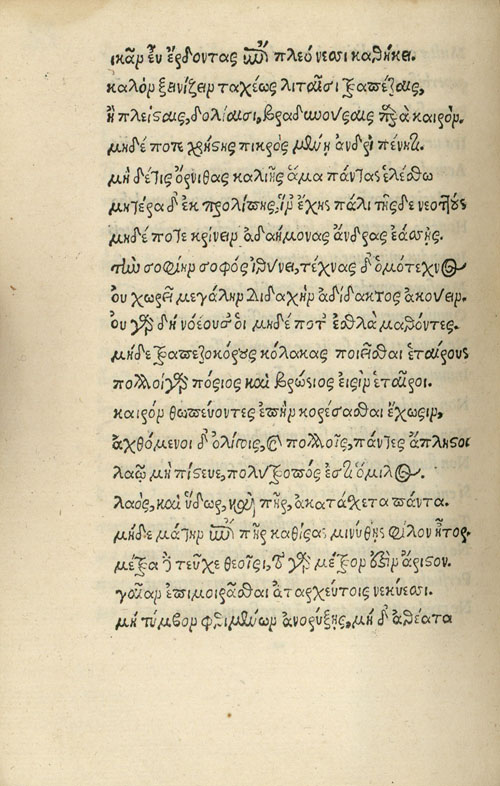 ικᾶν εὖ ἔρδοντας ἐπὶ πλεόνεσσι καθήκει.
καλὸν ξεινίζειν ταχέως λιταῖσι τραπέζαις,
ἢ πλείσταις, δολίαισι, βραδυνούσαις παρὰ καιρόν.
μηδέ ποτε χρήστης πικρὸς γένῃ ἀνδρὶ πένητι.
μηδέ τις ὄρνιθας καλιῆς ἅμα πάντας ἑλέσθω
μητέρα δ' ἐκ προλίπῃς, ἵν' ἔχῃς πάλι τῆσδε νεοττούς
μηδέ ποτε κρίνειν ἀδαήμονας ἄνδρας ἐάσῃς.
τὴν σοφίην σοφὸς ἰθύνει, τέχνας δ' ὁμότεχνος
οὐ χωρεῖ μεγάλην διδαχὴν ἀδίδακτος ἀκούειν.
οὐ γὰρ δὴ νόεουσ' οἱ μηδέ ποτ' ἐσθλὰ μαθόντες.
μηδὲ τραπεζοκόρους κόλακας ποιεῖσθαι ἑταίρους
πολλοὶ γὰρ πόσιος καὶ βρώσιος εἰσὶν ἑταῖροι.
καιρὸν θωπεύοντες ἐπὴν κορέσασθαι ἔχωσιν,
ἀχθόμενοι δ' ὀλίγοις, καὶ πολλοῖς, πάντες ἄπληστοι
λαῷ μὴ πίστευε, πολύτροπός ἐστι ὅμιλος.
λαὸς, καὶ ὕδωρ, καὶ πῦρ, ἀκατάσχετα πάντα.
μηδὲ μάτην ἐπὶ πῦρ καθίσας μινύθῃς φίλον ἦτορ.
μέτρα δὲ τεῦχε θεοῖσι, τὸ γὰρ μέτρον ἐστὶν ἄριστον.
γαῖαν ἐπιμοιρᾶσθαι ἀταρχεύτοις νεκύεσσι.
μὴ τύμβον φθιμένων ἀνορύξῃς, μὴ δ' ἀθέατα